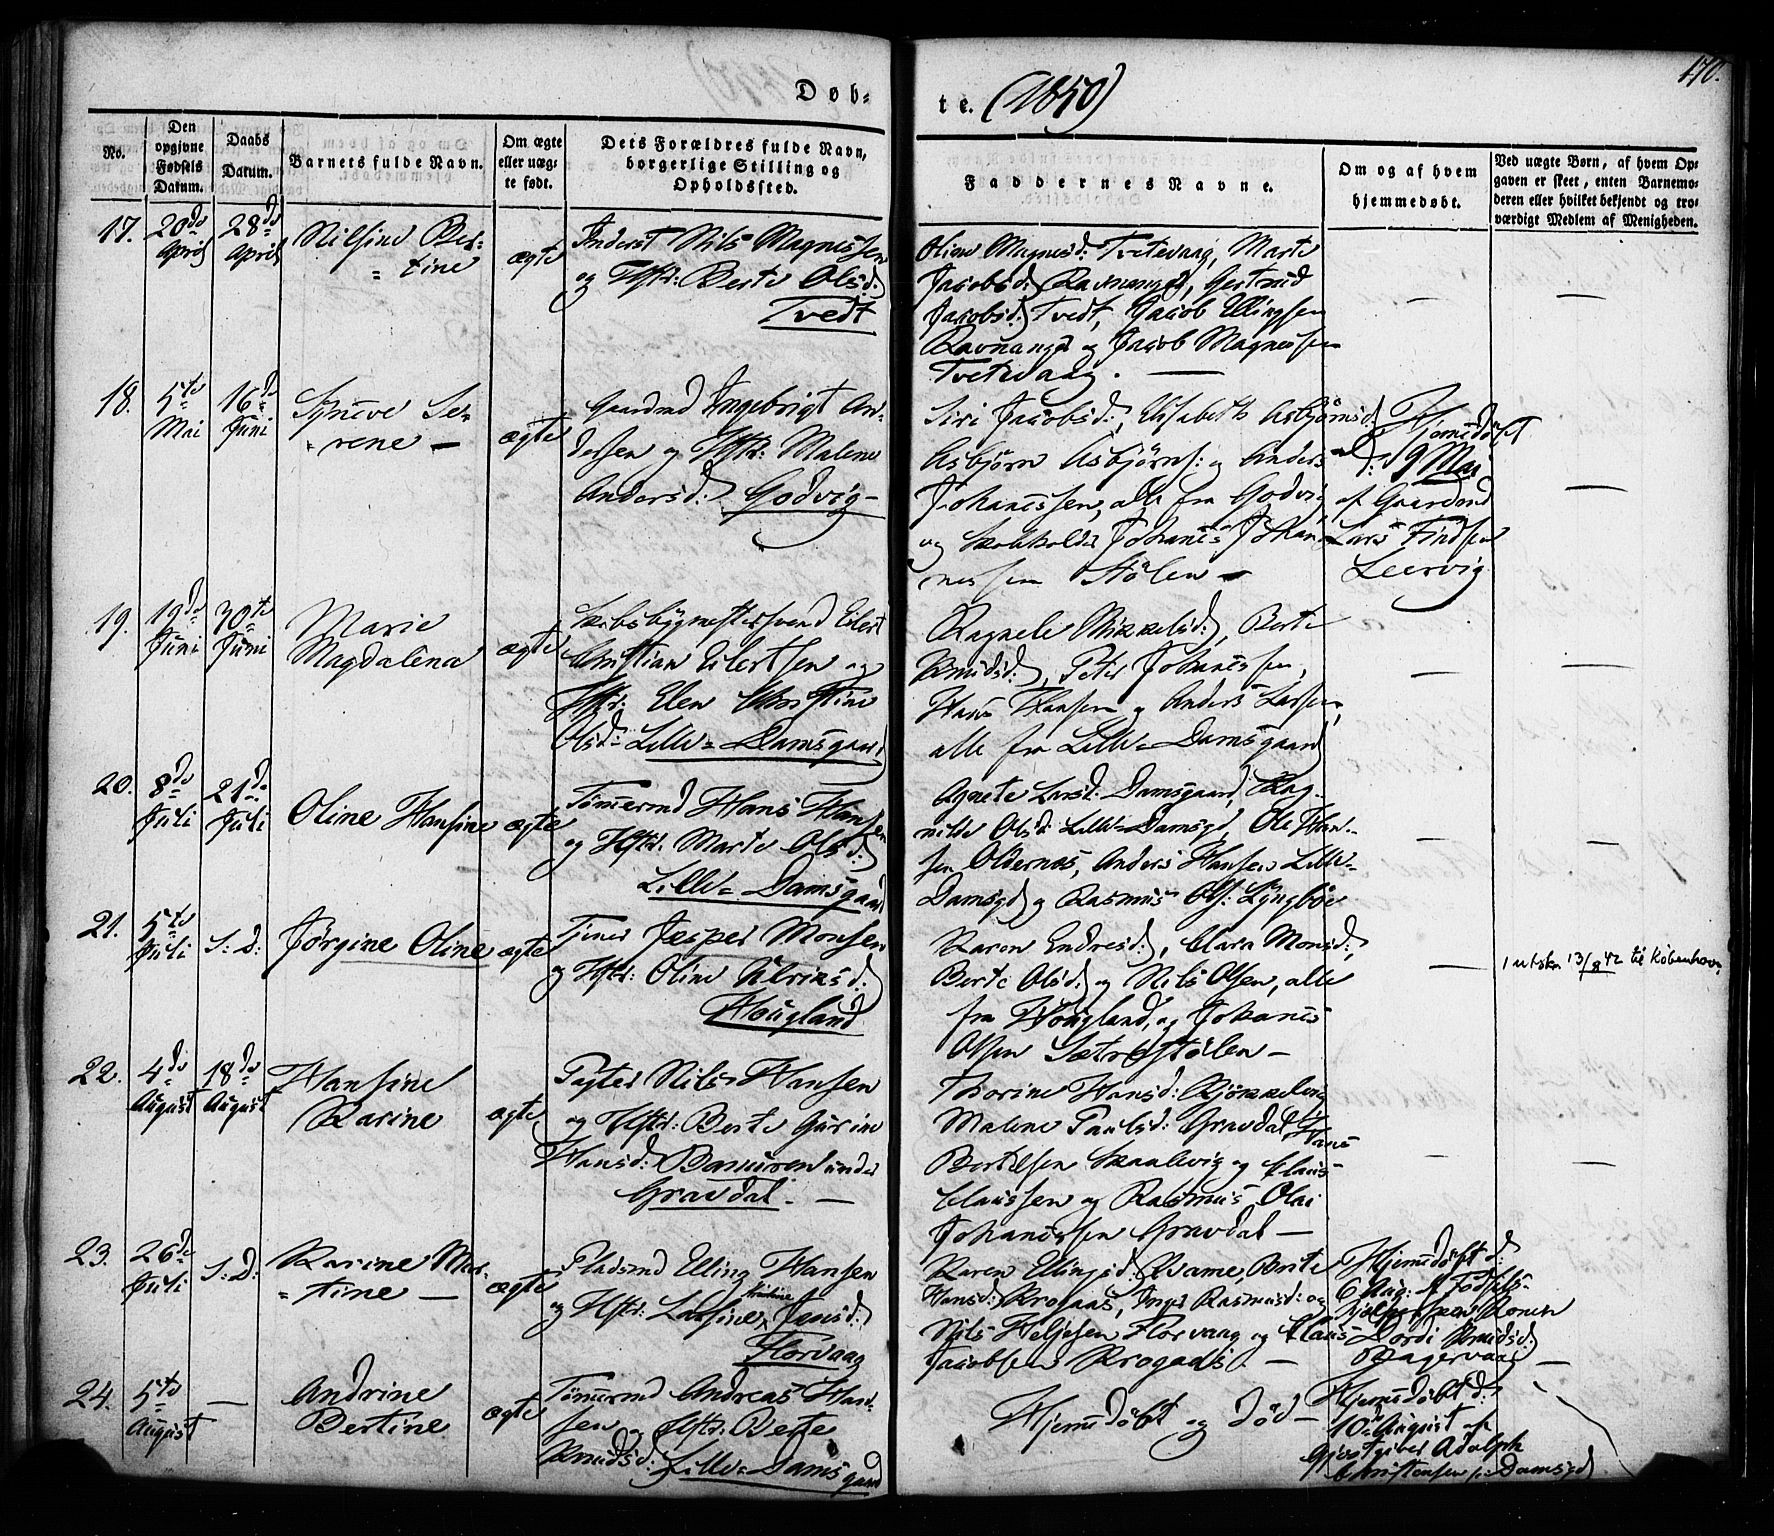 170.
Døb-
te. (1850)
No.
Den opgivne Fødsels Datum.
Daabs Datum.
Barnets fulde Navn.
Om ægte eller uæg-
te født.
Dets Forældres fulde Navn,
borgerlige Stilling og
Opholdssted.
Faddernes Navne.
Om og af hvem
hjemmedøbt.
Ved uægte Børn, af hvem Op-
gaven er skeet, enten Barnemo-
deren eller hvilket bekjendt og tro-
værdigt Medlem af Menigheden.
17.
20de April
28de April
Nilsine Ber-
tine
ægte
Inderst Nils Magnessen
og Hstr: Berte Olsd:
Tvedt
Oline Magnesd: Tvetevaag, Marte
Jacobsd: Ravnanger, Gertrud
Jacobsd: Tvedt, Jacob Ellingsen
Ravnanger og Jacob Magnussen
Tvetevaag. —
—
—
18.
5te Mai
16de Juni
Synneve Se-
rene —
ægte
Gaardmd Ingebrigt An-
dersen og Hstr: Malene
Andersd: Godvig —
Siri Jacobsd:, Elisabeth Asbjørnsd:
Asbjørn Asbjørns: og Anders
Johannessen, alle fra Godvig,
og Johannes Johan-
nessen Stølen —
Hjemmedøbt
d: 19 Mai
af Gaardmd
Lars Findsen
Leervig
—
19.
19de Juni
30te Juni
Marie
Magdalena
ægte
Skibsbygmestersvend Eilert
Christian Eilertsen og
Hstr: Elen Christine
Olsd: Lille-Damsgaard
Ragnele Mikkelsd:, Berte
Knudsd:, Peter Johannessen,
Hans Hansen og Anders Larsen,
alle fra Lille-Damsgaard
—
—
20.
8de Juli
21de Juli
Oline Hansine
ægte
Tømmermd Hans Hansen
og Hstr: Marte Olsd:
Lille-Damsgaard
Agnete Larsd: Damsgaard, Rag-
nilde Olsd: Lille-Damsgd, Ole Han-
sen Oldernes, Anders Hansen Lille-
Damsgd og Rasmus Ols: Lyngbøe
—
—
21.
5te Juli
S: D:
Jørgine Oline
ægte
Tjener Jesper Monsen
og Hstr: Oline Ulriksd:
Hougland
Karen Endresd:, Clara Monsd:,
Berte Olsd: og Nils Olsen, alle
fra Hougland, og Johannes
Olsen Sætrestølen —
—
1 utskr. 13/8 42 til København.
22.
4de August
18de August
Hansine
Karine
ægte
Pagter Nils Hansen
og Hstr: Berte Gurine
Hansd: under
Gravdal. —
Thorine Hansd: Bjøkkelvig
Malene Paulsd: Gravdal, Hans
Bertelsen Skaalevig og Claus
Claussen og Rasmus Olai
Johannessen Gravdal —
—
—
23.
26de Juli
S: D:
Karine Mar-
tine —
ægte
Pladsmd Elling Hansen
og Hstr: Larsine Jansd:
Florvaag
Karen Ellingsd: Kvame, Berte
Hansd: Krogaas, Inger Rasmusd: og
Nils Heljesen Florvaag og Claus
Jacobsen Krogaas. —
Hjemmedøbt d:
6 Aug: af Fødsels-
hjelpersken Konen
Dordi Knudsd:
Hagervaag
—
24.
5te August
—
Andrine
Bertine
ægte
Tømmermd Andreas Han-
sen og Hstr: Berte
Knudsd: Lille-Damsgaard
Hjemmedøbt og død —
Hjemmedøbt d:
10de August af
Gjestgiver Adolph
Christensen Damsgd